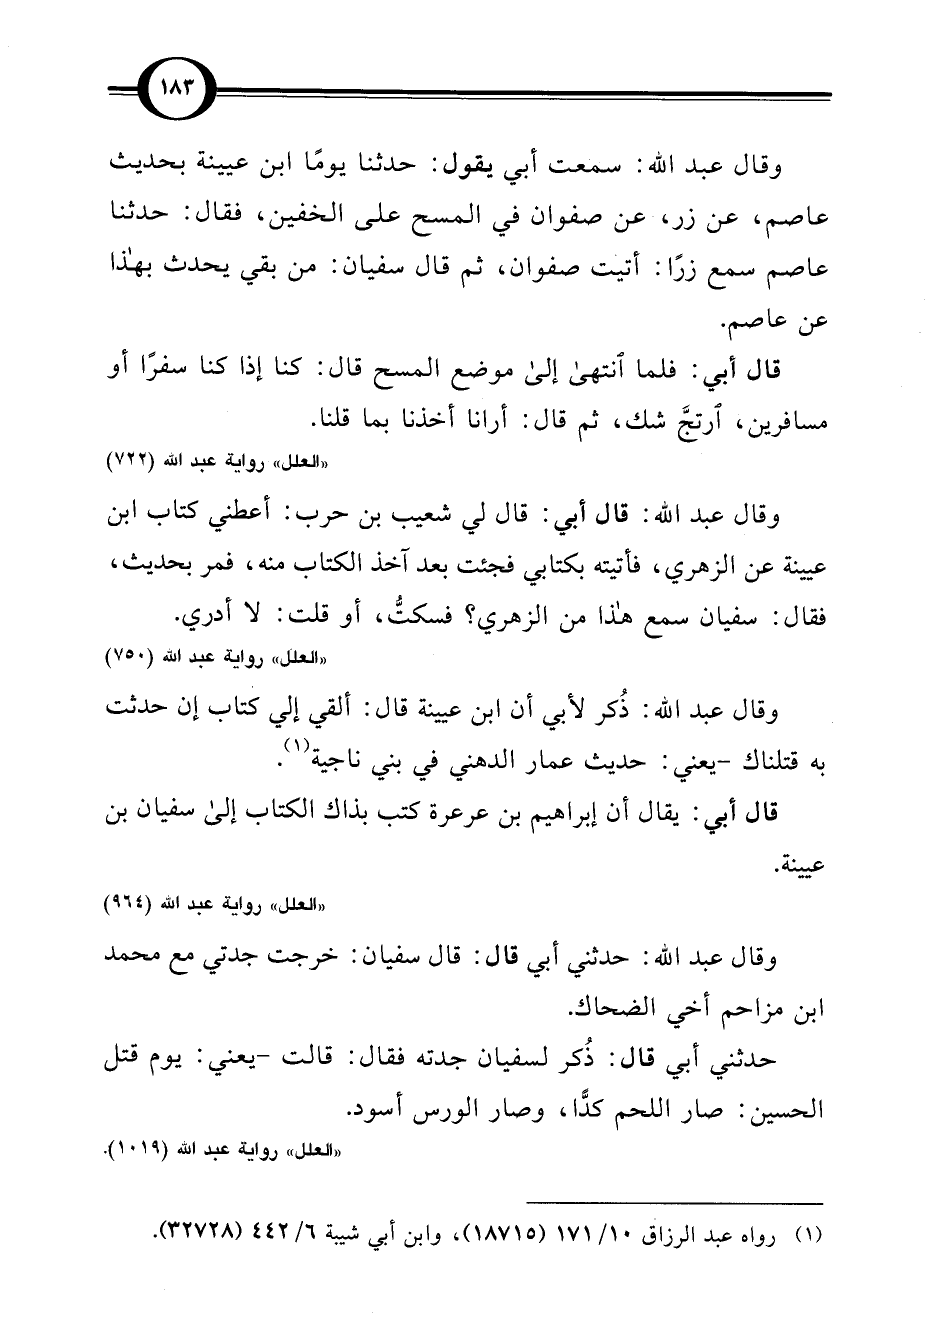 ١٨٣
وقال عبد الله: سمعت أبي يقول: حدثنا يومًا ابن عيينة بحديث
عاصم، عن زر، عن صفوان في المسح على الخفين، فقال: حدثنا
عاصم سمع زرًا: أتيت صفوان، ثم قال سفيان: من بقي يحدث بهٰذا
عن عاصم.
قال أبي: فلما ٱنتهىٰ إلىٰ موضع المسح قال: كنا إذا كنا سفرًا أو
مسافرين، ٱرتجَّ شك، ثم قال: أرانا أخذنا بما قلنا.
«العلل» رواية عبد الله (٧٢٢)
وقال عبد الله: قال أبي: قال لي شعيب بن حرب: أعطني كتاب ابن
عيينة عن الزهري، فأتيته بكتابي فجئت بعد آخذ الكتاب منه، فمر بحديث،
فقال: سفيان سمع هٰذا من الزهري؟ فسكتُّ، أو قلت: لا أدري.
«العلل» رواية عبد الله (٧٥٠)
وقال عبد الله: ذُكر لأبي أن ابن عيينة قال: ألقي إلي كتاب إن حدثت
به قتلناك -يعني: حديث عمار الدهني في بني ناجية(١).
قال أبي: يقال أن إبراهيم بن عرعرة كتب بذاك الكتاب إلىٰ سفيان بن
عيينة.
«العلل» رواية عبد الله (٩٦٤)
وقال عبد الله: حدثني أبي قال: قال سفيان: خرجت جدتي مع محمد
ابن مزاحم أخي الضحاك.
حدثني أبي قال: ذُكر لسفيان جدته فقال: قالت -يعني: يوم قتل
الحسين: صار اللحم كذَّا، وصار الورس أسود.
«العلل» رواية عبد الله (١٠١٩).
(١) رواه عبد الرزاق ١٠/ ١٧١ (١٨٧١٥)، وابن أبي شيبة ٦/ ٤٤٢ (٣٢٧٢٨).